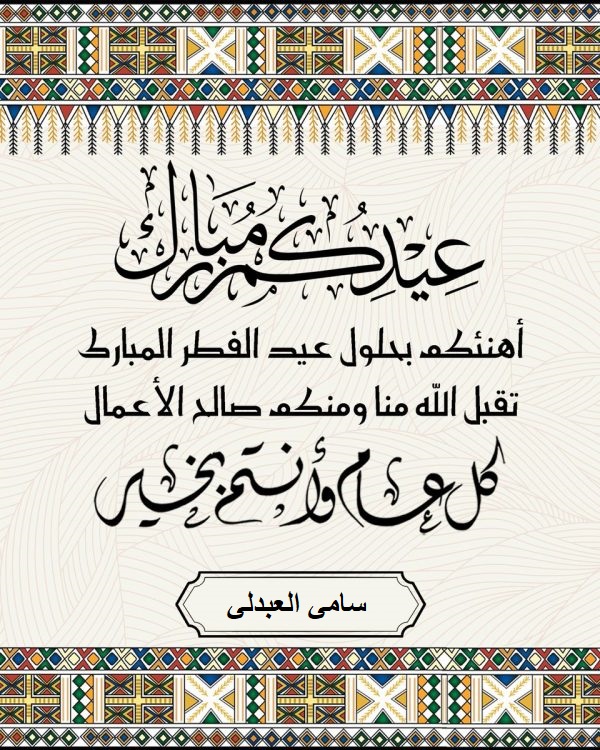 عِيْدِكُم مُبَارك
أهنئكم بحلول عيد الفطر المبارك
تقبل الله منا ومنكم صالح الأعمال
كل عام وأنتم بخير
سامى العبدلى